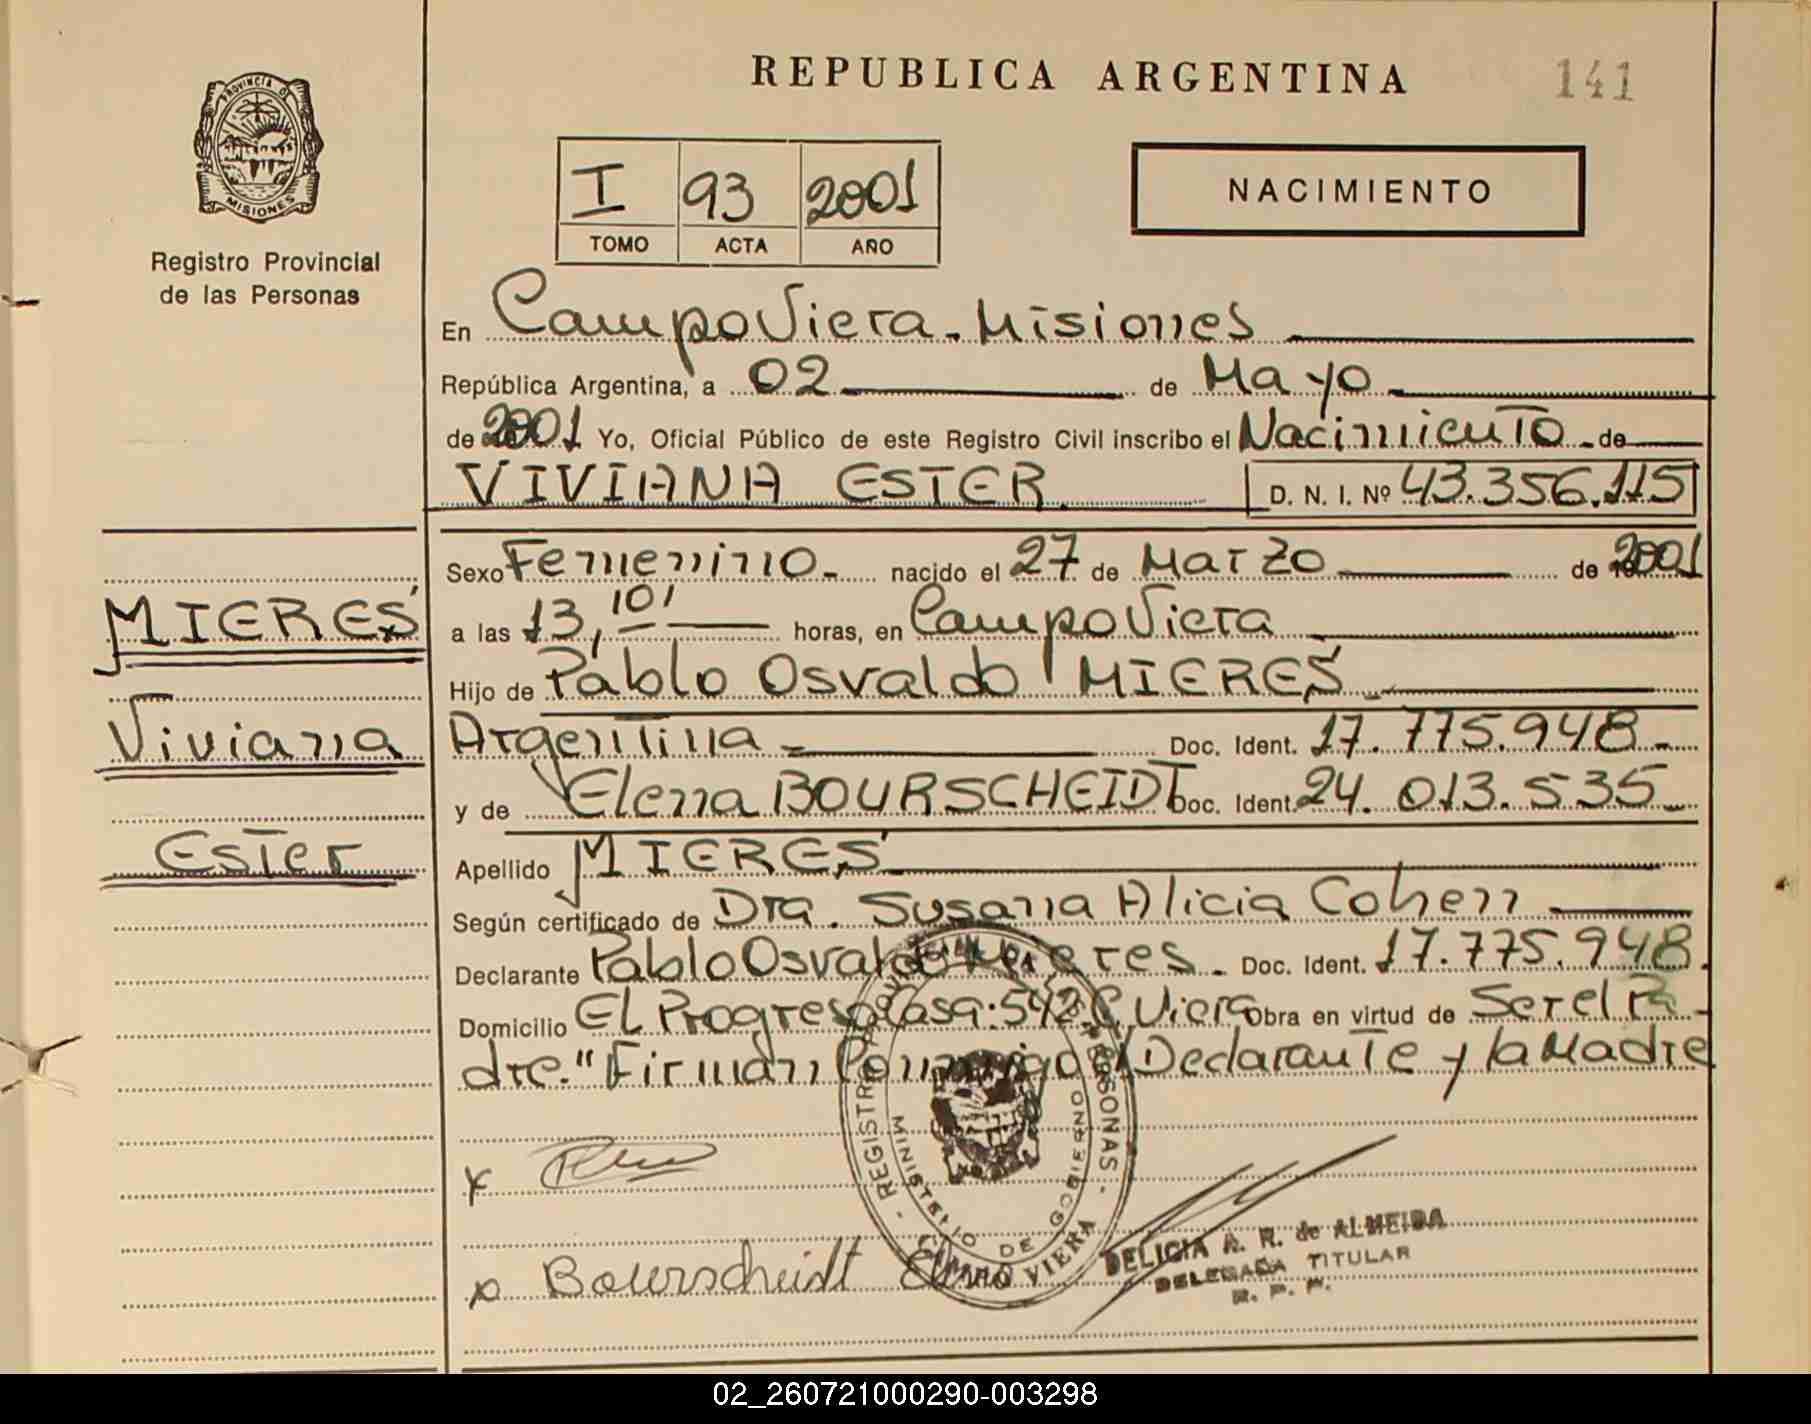 REPUBLICA ARGENTINA
141
PROVINCIA DE
MISIONES
Registro Provincial
de las Personas
I 93 2001
TOMO ACTA AÑO
NACIMIENTO
En Campo Viera - Misiones
República Argentina, a 02 de Mayo
de 2001 Yo, Oficial Público de este Registro Civil inscribo el Nacimiento - de
VIVIANA ESTER D. N. I. Nº 43.356.115
Sexo Femenino - nacido el 27 de Marzo de 2001
a las 13,101 horas, en Campo Viera
Hijo de Pablo Osvaldo MIERES
Argentina - Doc. Ident. 17.775.948 -
y de Elena BOURSCHEIDT Doc. Ident. 24.013.535
Apellido MIERES
Según certificado de Dra. Susana Alicia Cohen
Declarante Pablo Osvaldo Mieres - Doc. Ident. 17.775.948.
Domicilio El Progreso Casa: 542 C. Viera Obra en virtud de Ser el Pa-
dre." Firman Conmigo el Declarante y la Madre
MIERES
Viviana
Ester
x
x Bourscheidt Elena
REGISTRO PROVINCIAL DE LAS PERSONAS
MINISTERIO DE GOBIERNO
CAMPO VIERA
DELICIA A. R. de ALMEIDA
DELEGADA TITULAR
R. P. P.
02_260721000290-003298